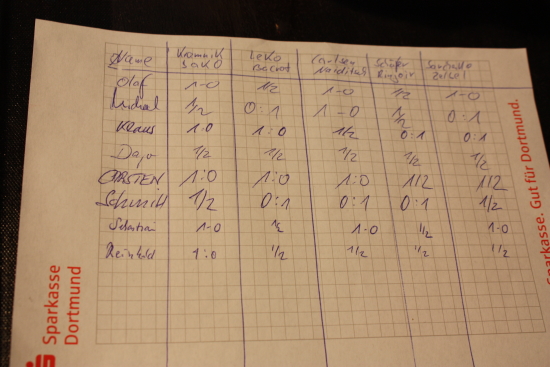 Name Kramnik Leko Carlsen Schäfer
Jako Bacrot Naiditsch
Olaf 1-0 1/2 1-0 1/2 1-0
Michal 1/2 0:1 1-0 1/2 0:1
Klaus 1:0 1:0 1/2 0:1 0:1
1/2 1/2 1/2 1/2 1/2
ORSTEN 1:0 1:0 1:0 1/2 1/2
Schmitt 1/2 0:1 0:1 0:1 1/2
Sebastian 1-0 1/2 1-0 1/2 1-0
Reinhold 1:0 1/2 1/2 1/2 1/2
Sparkasse
Dortmund
Sparkasse. Gut für Dortmund.